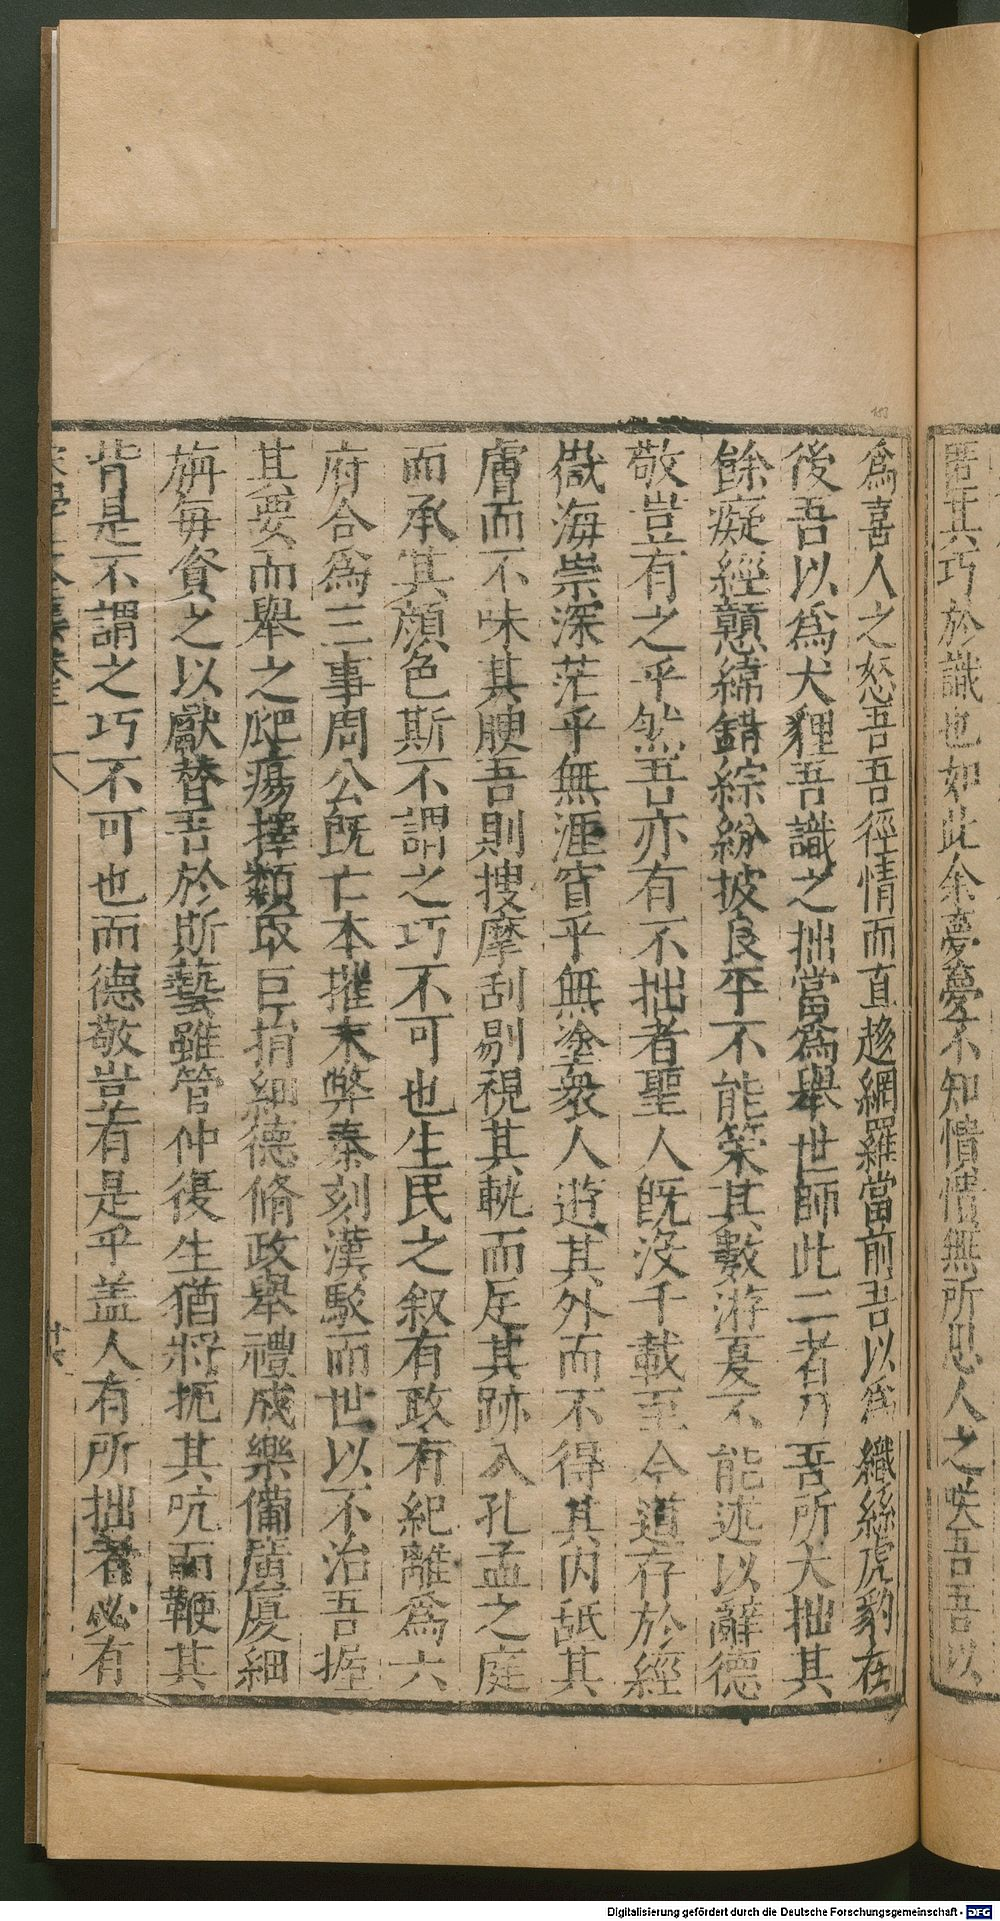 匿其巧於識也如此余夢夢不知憒憒無所思人之咲吾吾以
爲喜人之怒吾吾徑情而直趍網羅當前吾以爲織絲虎豹在
後吾以爲犬狸吾識之拙當爲舉世師此二者乃吾所大拙其
餘癡經戇緯錯綜紛披良平不能筞其數游夏不能述以辭德
敬豈有之乎然吾亦有不拙者聖人旣沒千載至今道存於經
嶽海崇深茫乎無涯窅乎無塗衆人遊其外而不得其內舐其
膚而不味其腴吾則搜摩刮剔視其軏而足其跡入孔孟之庭
而承其顏色斯不謂之巧不可也生民之叙有政有紀離爲六
府合爲三事周公旣亡本摧末弊秦刻漢駁而世以不治吾握
其要而舉之爬瘍擇類取巨捐細德脩政舉禮成樂備廣廈細
旃每資之以獻替吾於斯藝雖管仲復生猶將扼其吭而鞭其
背是不謂之巧不可也而德敬豈有是乎盖人有所拙者必有
廿六
Digitalisierung gefördert durch die Deutsche Forschungsgemeinschaft - DFG